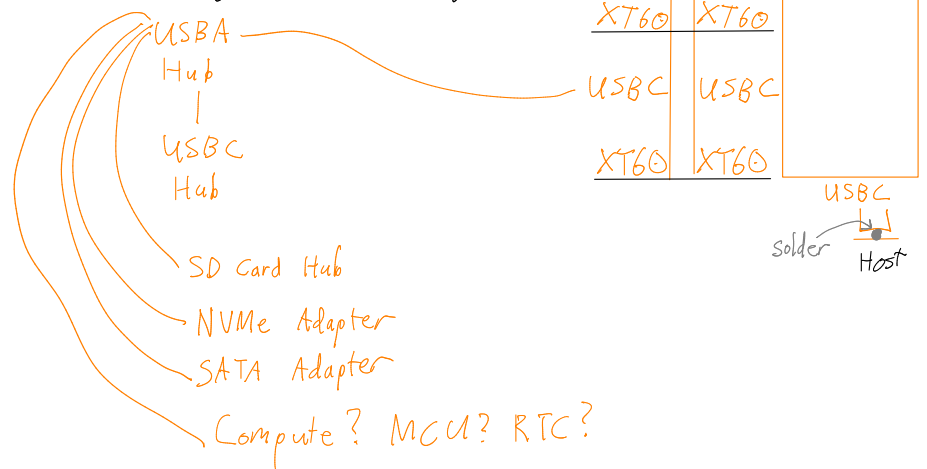 USBA
Hub
USBC
Hub
SD Card Hub
NVMe Adapter
SATA Adapter
Compute? MCU? RTC?
XT60 XT60
USBC USBC
XT60 XT60
USBC
solder
Host